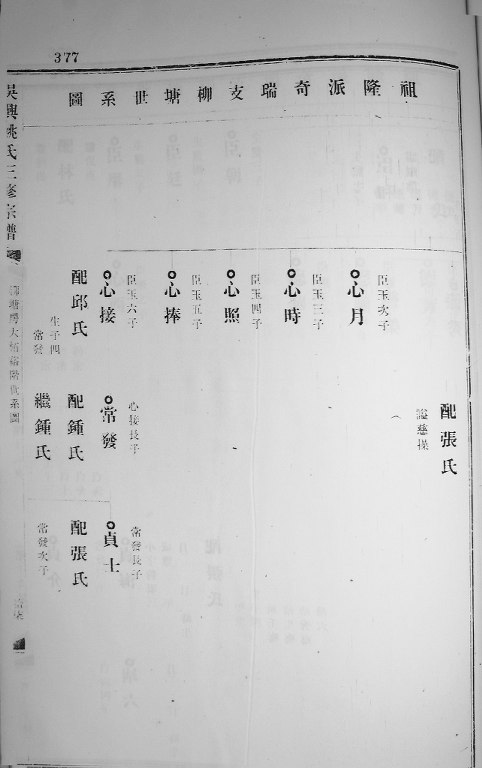 377
祖隆派奇瑞支柳塘世系圖
配張氏
謚慈操
臣玉次子
心月
臣玉三子
心時
臣玉四子
心照
臣玉五子
心捧
臣玉六子
心接
配邱氏
生子四
常發
心接長子
常發
配鍾氏
繼鍾氏
常發長子
貞士
配張氏
常發次子
吳興姚氏三修宗譜